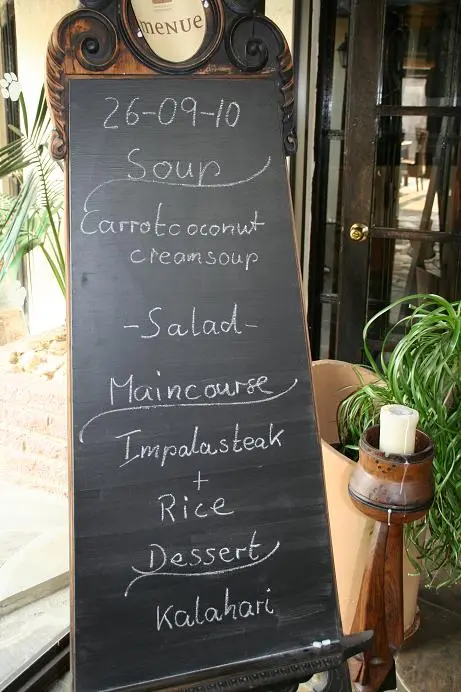 MENUE
26-09-10
Soup
Carrotcoconut
creamsoup
-Salad-
Maincourse
Impalasteak
+
Rice
Dessert
Kalahari